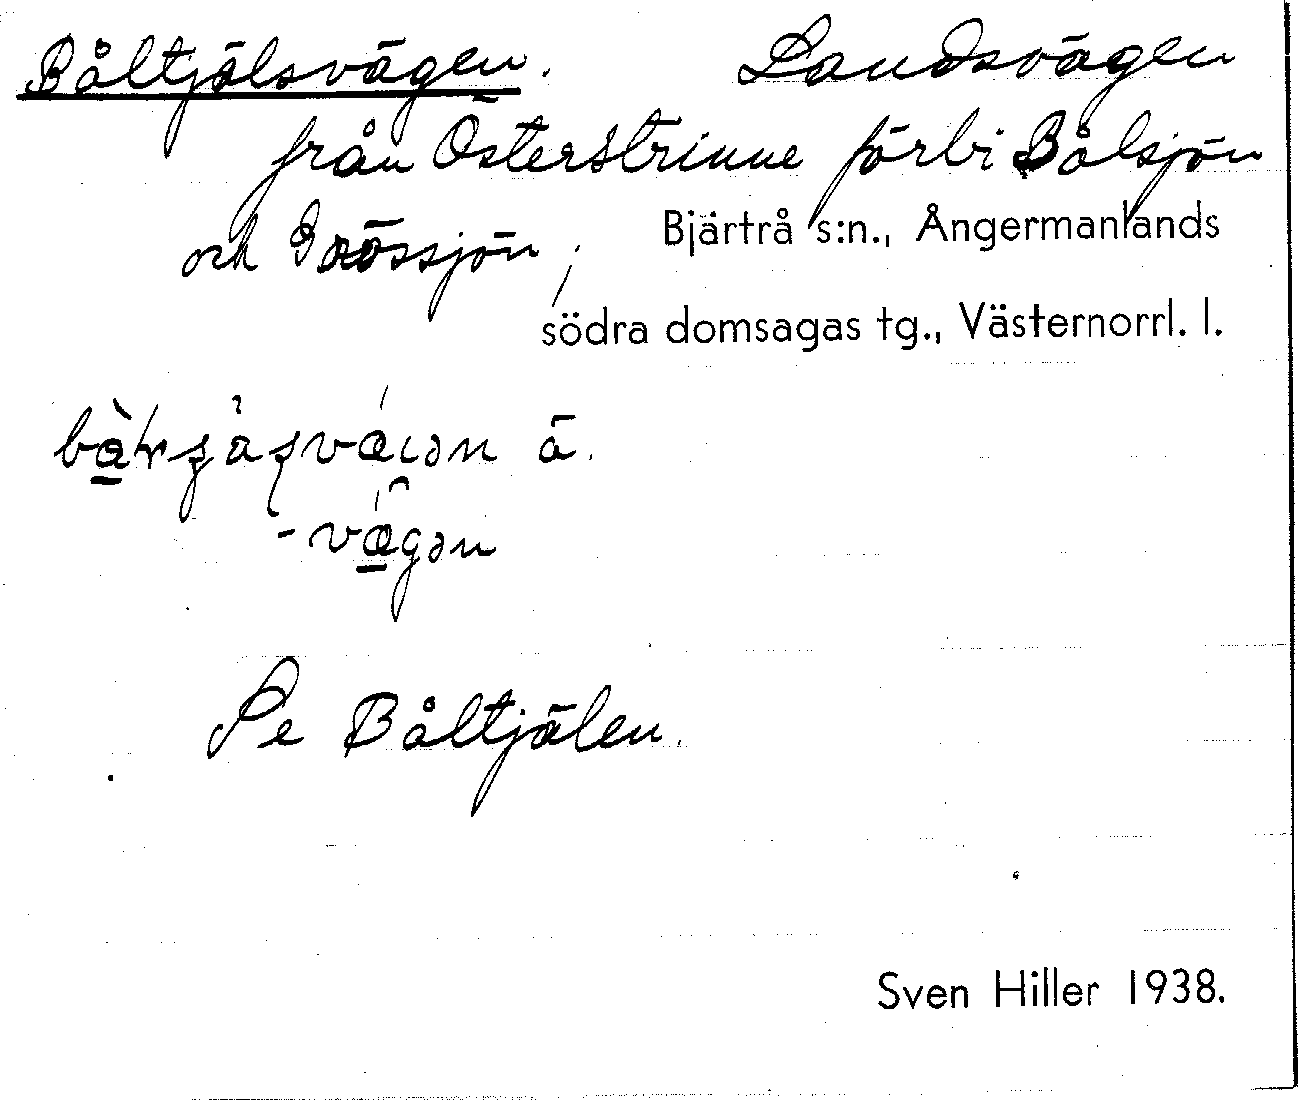 Båltjälsvägen. Landsvägen
från Österstrinne förbi Bålsjön
och
Bjärtrå s:n., Ångermanlands
södra domsagas tg., Västernorrl. l.
ä.
Se Båltjälen.
Sven Hiller 1938.